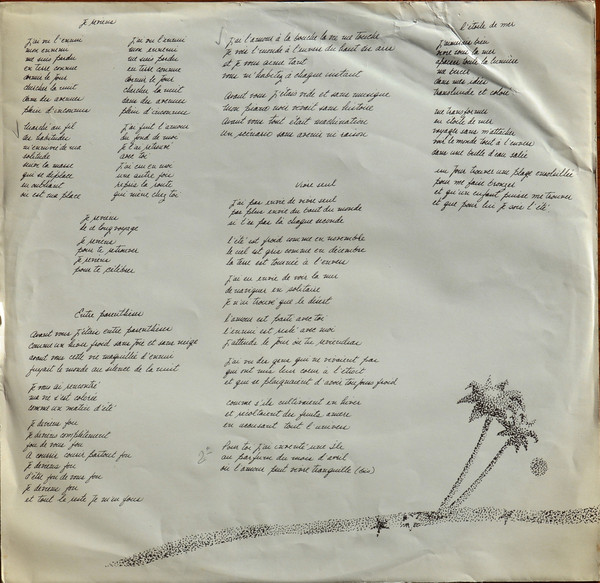 Je reviens
j'ai vu l'ennui
mon ennemi
me suis perdu
en terre connue
comme le jour
cherche la nuit
dans des avenues
pleine d'inconnues
marche au fil
des habitudes
m'enivre de ma
solitude
suivre la masse
qui se déplace
en oubliant
où est ma place
j'ai vu l'ennui
mon ennemi
me suis perdu
en terre connue
comme le jour
cherche la nuit
dans des avenues
pleine d'inconnues
j'ai fuit l'amour
du fond de moi
je l'ai retrouvé
avec toi
j'ai cru en moi
une autre fois
repris la route
qui mène chez toi
Je reviens
de ce long voyage
je reviens
pour te retrouver
je reviens
pour te célébrer
Entre parenthèses
Avant vous j'étais entre parenthèses
comme un hiver froid sans joie et sans neige
avant vous cette vie maquillée d'ennui
fuyait le monde au silence de la nuit
Je vous ai rencontré
ma vie s'est colorée
comme un matin d'été
Je deviens fou
Je deviens complètement
fou de vous fou
à courir, courir partout fou
Je deviens fou
d'être fou de vous fou
Je deviens fou
et tout le reste je m'en fous
J'ai l'amour à la bouche la vie me touche
Je vois l'monde à l'envers du haut des airs
et je vous aime tant
vous m'habitez à chaque instant
Avant vous j'étais vide et sans musique
mon piano noir vivait sans histoire
Avant vous tout était machination
un scénario sans avenir ni raison
Vivre seul
J'ai pas envie de vivre seul
pas plus envie du bout du monde
si t'es pas là chaque seconde
L'été est froid comme en novembre
le ciel est gris comme en décembre
la terre est tournée à l'envers
J'ai eu envie de voir la mer
de naviguer en solitaire
Je n'ai trouvé que le désert
L'amour est parti avec toi
L'ennui est resté avec moi
J'attends le jour où tu reviendras
J'ai vu des gens qui ne vivaient pas
qui ont mis leur coeur à l'étroit
et qui se plaignaient d'avoir toujours froid
comme s'ils cultivaient en hiver
et récoltaient des fruits amers
en accusant tout l'univers
2e
Pour toi j'ai inventé une île
au parfum du mois d'avril
où l'amour peut vivre tranquille (bis)
L'étoile de mer
J'aimerais bien
vivre sous la mer
apaiser toute la lumière
me bercer
dans mes idées
translucide et coloré
me transformer
en étoile de mer
voyager sans m'attacher
voir le monde tout à l'envers
dans une bulle d'eau salée
un jour trouver une plage ensoleillée
pour me faire bronzer
et qu'un enfant puisse me trouver
et que pour lui je sois l'été